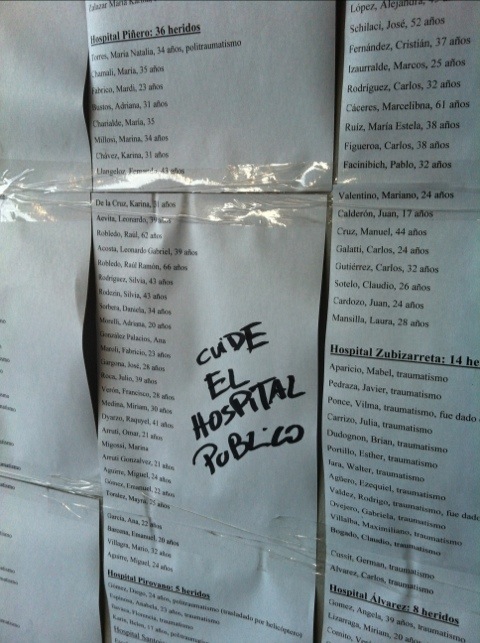 Hospital Piñero: 36 heridos
Torres, María Natalia, 34 años, politraumatismo
Chamali, María, 35 años
Fabrico, Mardi, 23 años
Bustos, Adriana, 31 años
Charialde, María, 35
Millosi, Marina, 34 años
Chávez, Karina, 31 años
43 años
De la Cruz, Karina, 31 años
Asvita, Leonardo, 39 años
Robledo, Raúl, 62 años
Acosta, Leonardo Gabriel, 39 años
Robledo, Raúl Ramón, 66 años
Rodríguez, Silvia, 43 años
Silvia, 43 años
Daniela, 34 años
Morelli, Adriana, 20 años
González Palacios, Ana
Maroli, Fabricio, 23 años
José, 28 años
Roca, Julio, 39 años
Verón, Francisco, 28 años
Medina, Miriam, 30 años
Oyarzo, Raquyel, 41 años
Arruti, Omar, 21 años
Migossi, Marina
Arruti Gonzalvez, 21 años
Aguirre, Miguel, 24 años
Gómez, Emanuel, 22 años
Toralez, Mayra, 25 años
García, Ana, 22 años
Emanuel, 20 años
Villagra, Mario, 32 años
Aguirre, Miguel, 24 años
Hospital Pirovano: 5 heridos
Gómez, Diego, 24 años, politraumatismo (trasladado por helicóptero)
Espinoza, Anabela, 23 años, traumatismo
Florencia, traumatismo
CUIDE
EL
HOSPITAL
PUBLICO
López, Alejandra,
Schilaci, José, 52 años
Fernández, Cristián, 37 años
Izaurralde, Marcos, 25 años
Rodríguez, Carlos, 32 años
Cáceres, Marcelibna, 61 años
Ruíz, María Estela, 38 años
Figueroa, Carlos, 38 años
Facinibich, Pablo, 32 años
Valentino, Mariano, 24 años
Calderón, Juan, 17 años
Cruz, Manuel, 44 años
Galatti, Carlos, 24 años
Gutiérrez, Carlos, 32 años
Sotelo, Claudio, 26 años
Cardozo, Juan, 24 años
Mansilla, Laura, 28 años
Hospital Zubizarreta: 14 he
Aparicio, Mabel, traumatismo
Pedraza, Javier, traumatismo
Ponce, Vilma, traumatismo, fue dado
Carrizo, Julia, traumatismo
Dudognon, Brian, traumatismo
Portillo, Esther, traumatismo
Jara, Walter, traumatismo
Agüero, Ezequiel, traumatismo
Valdez, Rodrigo, traumatismo, fue dado
Ovejero, Gabriela, traumatismo
Villalba, Maximiliano, traumatismo
Bogado, Claudio, traumatismo
Cussit, German, traumatismo
Alvarez, Carlos, traumatismo
Hospital Álvarez: 8 heridos
Gomez, Angela, 39 años, traumatismo
Lizarraga, Miriam, 20 años,